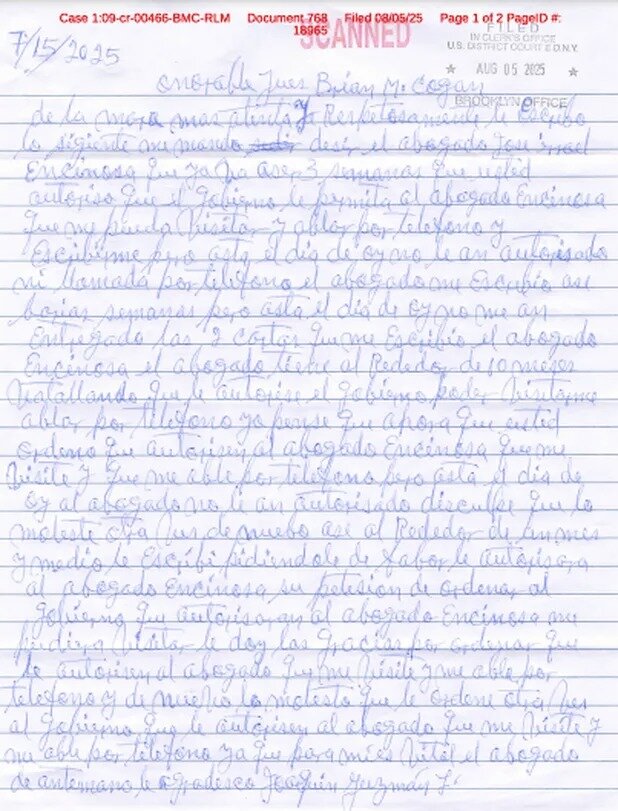 Case 1:09-cr-00466-BMC-RLM Document 768 Filed 08/05/25 Page 1 of 2 PageID #: 18965
SCANNED
FILED
IN CLERK'S OFFICE
U.S. DISTRICT COURT E.D.N.Y.
★ AUG 05 2025 ★
BROOKLYN OFFICE
7/15/2025
onorable Jues Brian M. Cogan
de la mara mas atenta y Respetosamente le Escribo
lo sigiente me mando desir el abogado Jose Israel
Encinosa que ya va aser 3 semanas que usted
autoriso que el gobierno le permita al abogado Encinosa
que me pueda Visitar y ablar por telefono y
Escribirme pero asta el dia de oy no le an autorisado
ni llamada por telefono el abogado me Escribio ase
barias semanas pero asta el dia de oy no me an
Entregado las 2 cartas que me Escribio el abogado
Encinosa el abogado tiene al Rededor de 10 meses
batallando que le autorise el gobierno poder Visitarme
ablar por telefono ya pense que ahora que usted
ordeno que autorisen al abogado Encinosa que me
Visite y que me able por telefono pero asta el dia de
oy al abogado no le an autorisado disculpe que lo
moleste otra bes de nuebo ase al Rededor de un mes
y medio le Escribi pidiendole de fabor le autorisara
al abogado Encinosa su petision de ordenar al
gobierno que autorisaran al abogado Encinosa me
pudiera Visitar le doy las gracias por ordenar que
le autorisen al abogado que me Visite y me able por
telefono y de nuebo lo molesto que le ordene otra bes
al gobierno que le autorisen al abogado que me Visite y
me able por telefono ya que para mi es Vital el abogado
de antemano le agradesco Joaquin Guzman L.